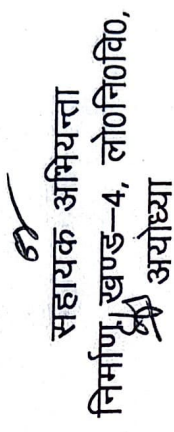 सहायक अभियन्ता
निर्माण खण्ड–4, लो०नि०वि०,
अयोध्या